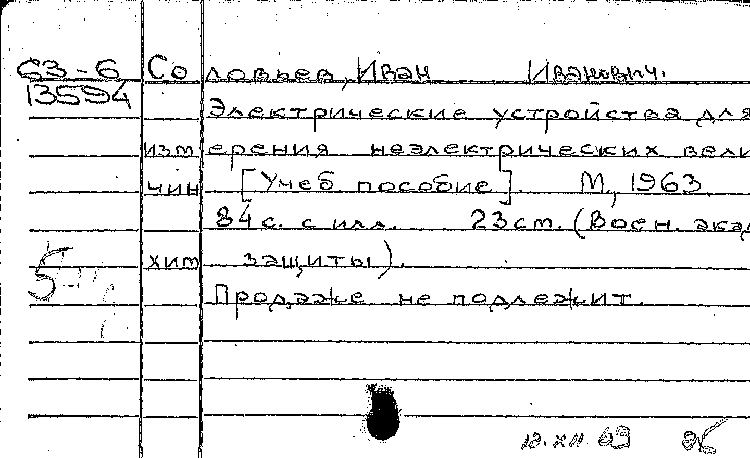 63-6 Соловьев, Иван Иванович.
13594 Электрические устройства для
измерения неэлектрических вели
чин [Учеб. пособие]. М., 1963
84 с. с илл. 23 см. (Воен. акад
хим защиты).
Продаже не подлежит.
12.XII.63